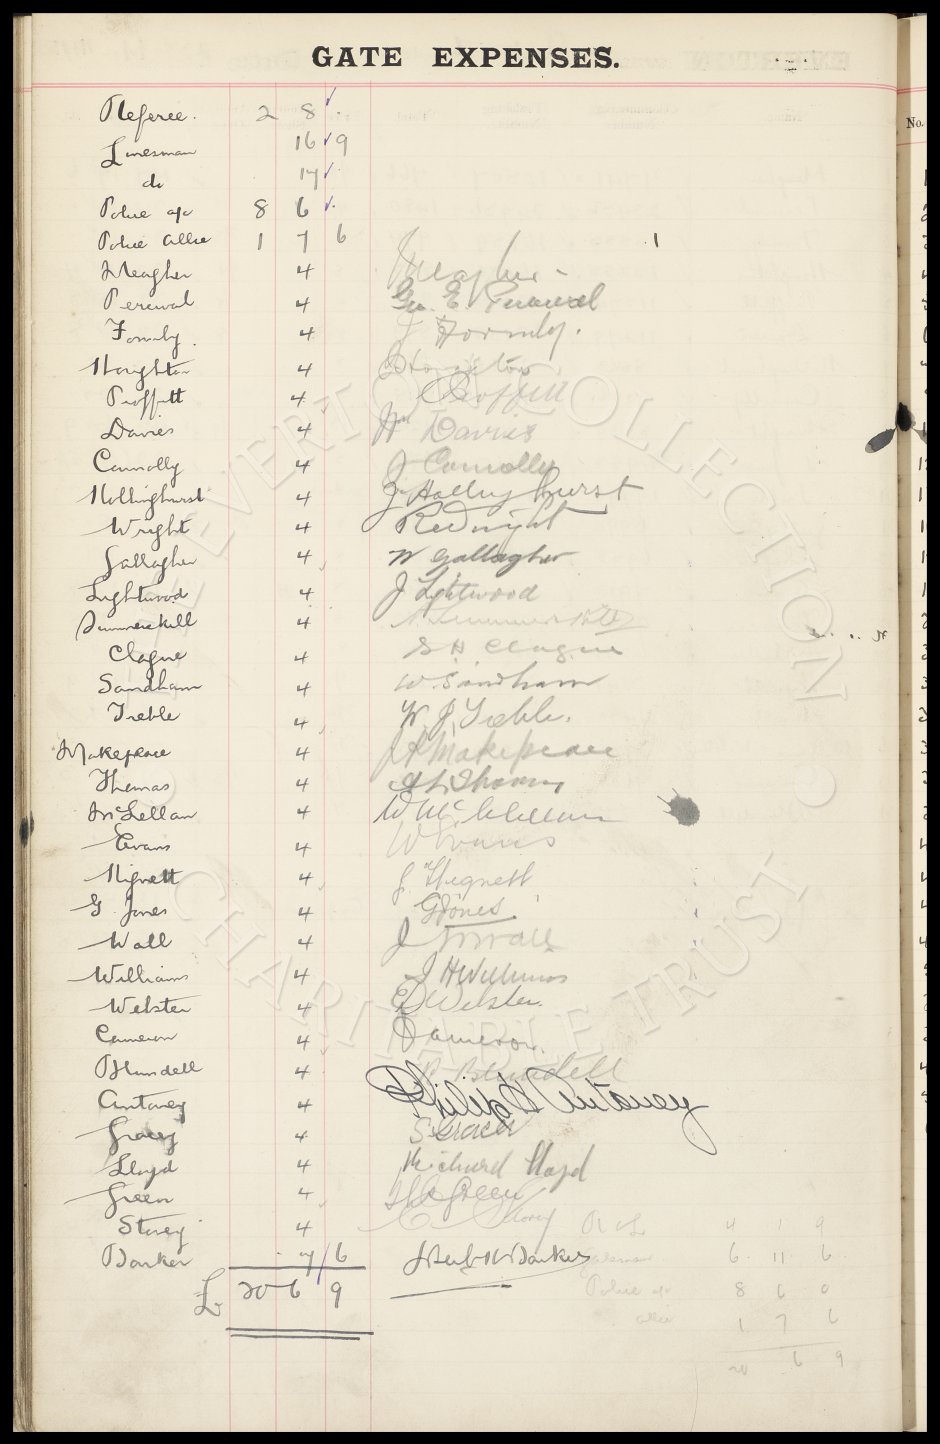 GATE EXPENSES.
No.
Referee. 2 8
Linesman 16 9
do 17
Police a/c 8 6
Police allce 1 7 6
Meagher 4 Meagher
Percival 4 Geo. E Percival
Formby. 4 J Formby.
Houghton 4 Houghton
Proffitt 4 Proffitt
Davies 4 Wm Davies
Connolly 4 J Connolly
Hollinghurst 4 J Hollinghurst
Wright 4 R Wright
Gallagher 4 W Gallagher
Lightwood 4 J Lightwood
Summerskill 4 Summerskill
Clague 4 S H Clague
Sandham 4 W. Sandham
Treble 4 W. J. Treble.
Makepeace 4 Makepeace
Thomas 4 Thomas
McLellan 4 W McClellan
Evans 4 W Evans
Hignett 4 J. Hignett
G. Jones 4 G Jones
Wall 4 J Wall
Williams 4 J H Williams
Webster 4 E Webster.
Cameron 4 Cameron.
Blundell 4 R Blundell
Antoney 4 Philip H Antoney
Gracey 4 S Gracey
Lloyd 4 Richard Lloyd
Green 4 Green
Storey 4 Storey
R & L 4 1 9
Barker 7 / 6 Herbt H Barker
Gatemen 6 11 6
£ 20 6 9
Police a/c 8 6 0
allce 1 7 6
20 6 9
THE EVERTON COLLECTION
CHARITABLE TRUST